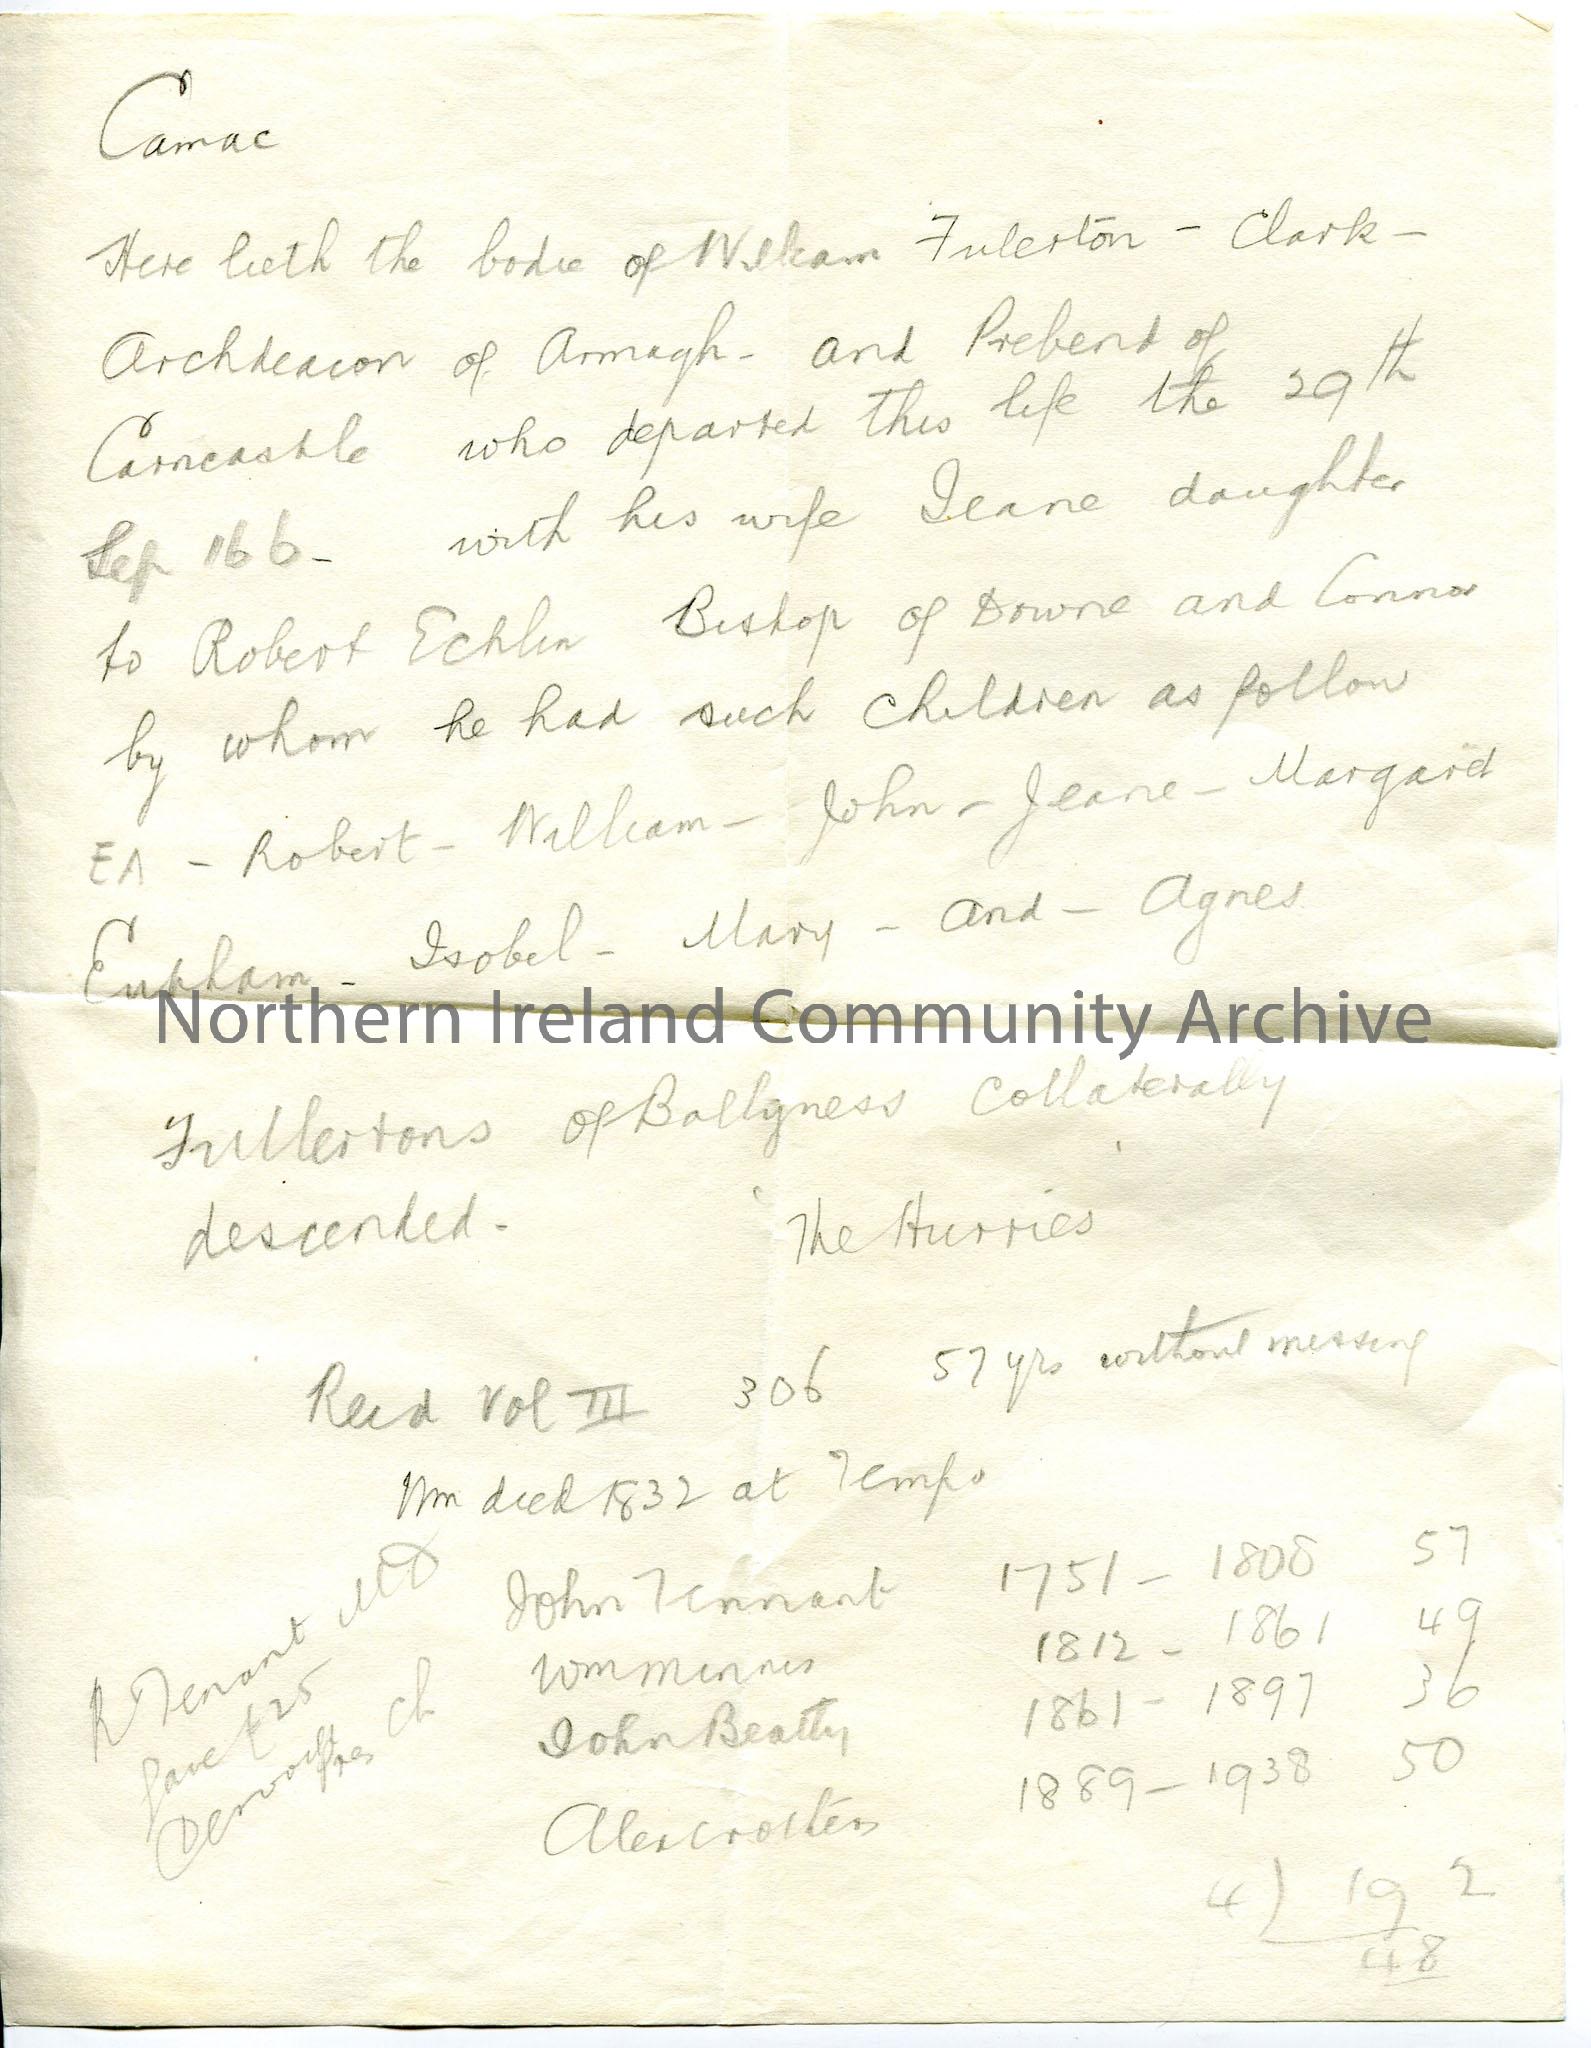 Camac
Here lieth the bodie of William Fulerton - Clark -
Archdeacon of Armagh - and Prebend of
Carncastle who departed this life the 29th
Sep 166- with his wife Jeane daughter
to Robert Echlin Bishop of Downe and Connor
by whom he had such children as follow
EA - Robert - William - John - Jeane - Margaret
Eupham - Isobel - Mary - and - Agnes
Northern Ireland Community Archive
Fullertons of Ballyness collaterally
descended - The Hurries
Reid Vol III 306 57 yrs without missing
Wm died 1832 at Tempo
John Tennant 1751 - 1808 57
Wm Minnis 1812 - 1861 49
John Beatty 1861 - 1897 36
Alex Crothers 1889 - 1938 50
4) 192
48
R Tenant MD
gave £25
Dervock Pres Ch